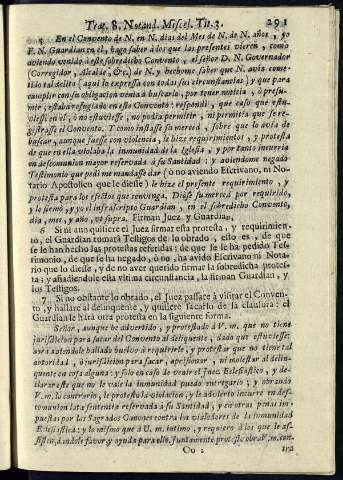 Trat. 8. Notand. Miscel. Tit. 3. 291
5 En el Convento de N. en N. dias del Mes de N. de N. años, yo
F. N. Guardian en èl, hago saber à los que las presentes vieren, como
aviendo venido à este sobredicho Convento, el señor D. N. Governador
(Corregidor, Alcalde, &c.) de N. y hechome saber que N. avia come-
tido tal delito (aqui lo expressa con todas sus circunstancias) y que para
cumplir con su obligacion venìa à buscarlo, por tener noticia, ò presu-
mir, estaba refugiado en esse Convento: respondì, que caso que estu-
viesse en èl, ò no estuviesse, no podia permitir, ni permitia que se re-
gistrasse el Convento. Y como instasse su merced, sobre que lo avia de
buscar, aunque fuesse con violencia, le hize requirimientos, y protesta
de que en ella violaba la inmunidad de la Iglesia, y por tanto incurria
en descomunion mayor reservada à su Santidad: y aviendome negado
Testimonio que pedì me mandasse dar (ò no aviendo Escrivano, ni No-
tario Apostolico que le diesse) le hize el presente requirimiento, y
protesta para los efectos que convenga. Diòse su merced por requirido,
y lo firmò, y yo el infrascripto Guardian, en el sobredicho Convento,
dia, mes, y año, vt supra. Firman Juez, y Guardian.
6 Si aun no quiliere el Juez firmar esta protesta, y requirimien-
to, el Guardian tomarà Testigos de lo obrado, esto es, de que
se le han hecho las protestas referidas: de que se le ha pedido Tes-
timonio, de que se ha negado, ò no ha avido Escrivano ni Nota-
rio que lo diesse, y de no aver querido firmar la sobredicha protes-
ta; y añadiendole esta vltima circunstancia, la firman Guardian, y
los Testigos.
7 Si no obstante lo obrado, el Juez passare à visitar el Conven-
to, y hallare al delinquente, y quisiere sacarlo de la clausura: el
Guardian le harà otra protesta en la siguiente forma.
Señor, aunque he advertido, y protestado à V. m. que no tiene
jurisdiccion para sacar del Convento al delinquente, dado que estuviesse:
aora aviendole hallado buelvo à requirirle, y protestar que no tiene tal
autoridad, ò jurisdiccion para sacar, apessonar, ni molestar al delin-
quente en cosa alguna: y solo en caso de venir el Juez Eclesiastico, y de-
clarare este que no le vale la inmunidad puedo entregarlo; y obrando
V. m. lo contrario, le protesto la violencia, y le advierto incurre en des-
comunion latæ sententiæ reservada à su Santidad, y en otras penas im-
puestas por los Sagrados Canones contra los violadores de la inmunidad
Eclesiastica: y lo mismo que à V. m. intimo, y requiero à los que le as-
sisten, dandole favor, y ayuda para ello. Juntamente protesto obra V. m. con-
Oo 2 tra